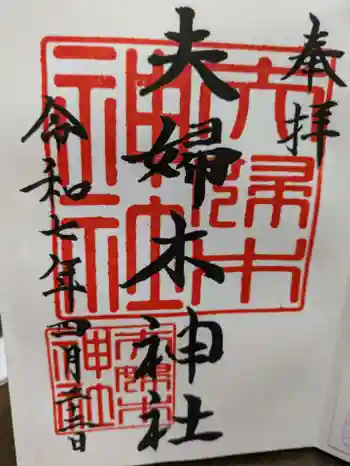 奉拝
夫婦木神社
令和七年四月二十三日
夫婦木
神社
夫婦木
神社